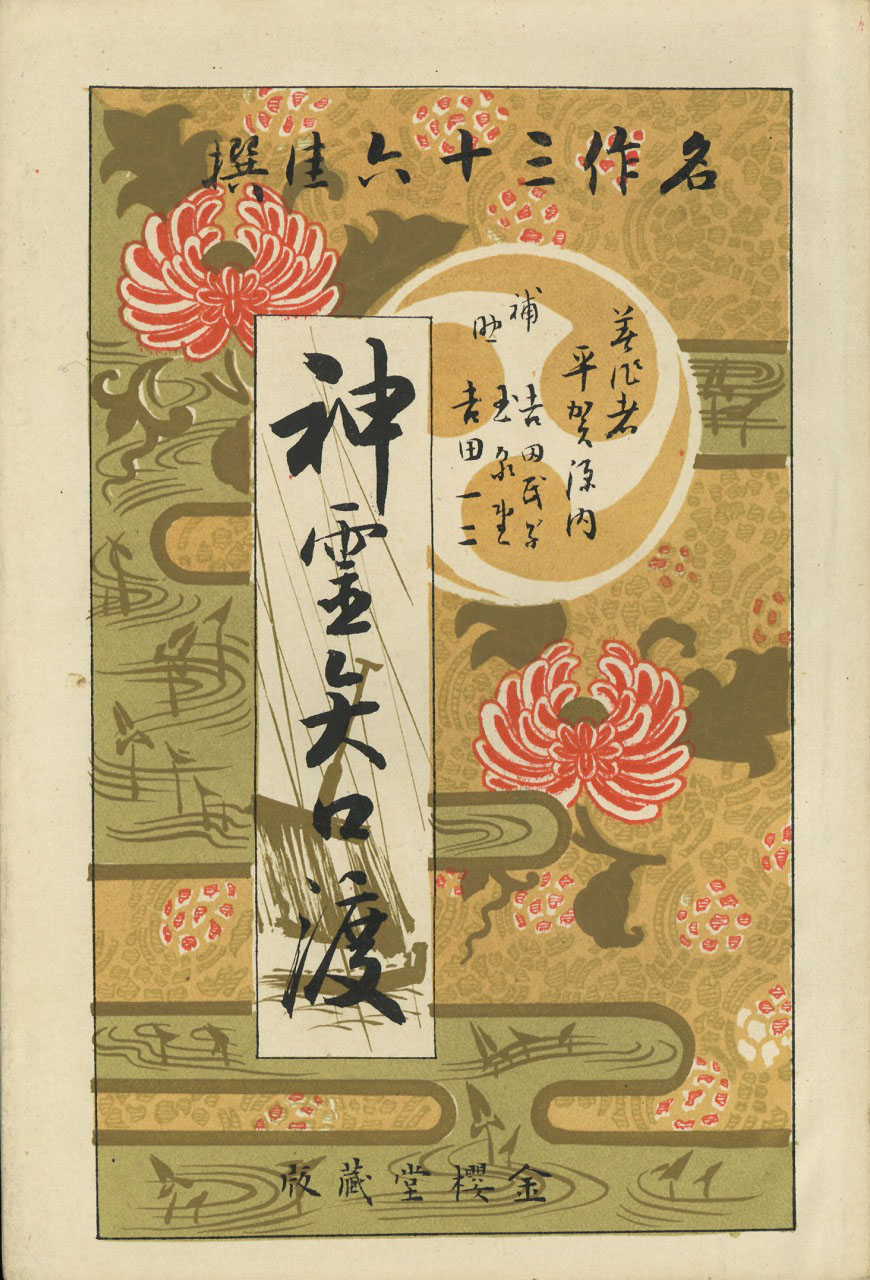 名作三十六佳撰
著作者
平賀源内
補助
吉田
玉泉堂
吉田一二
神霊矢口渡
金櫻堂藏版